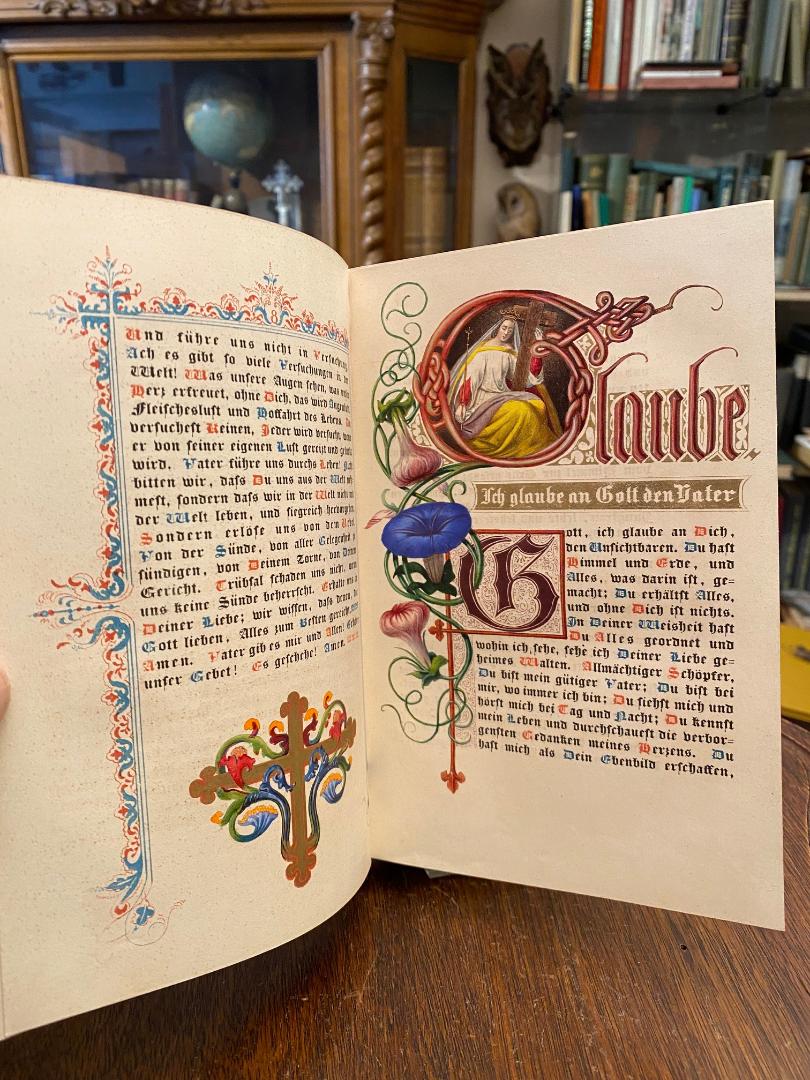 8
Und führe uns nicht in Versuchung
Ach es gibt so viele Versuchungen in der
Welt! Was unsere Augen sehen, was unser
Herz erfreuet, ohne Dich, das wird Augenlust,
Fleischeslust und Hoffahrt des Lebens.
versuchest Keinen, Jeder wird versucht, wenn
er von seiner eigenen Lust gereizt und gelockt
wird. Vater führe uns durchs Leben!
bitten wir, dass Du uns aus der Welt neh-
mest, sondern dass wir in der Welt nicht mit
der Welt leben, und siegreich hervorgehen.
Sondern erlöse uns von dem Uebel.
Von der Sünde, von aller Gelegenheit zu
sündigen, von Deinem Zorne, von Deinem
Gericht. Trübsal schaden uns nicht, wenn
uns keine Sünde beherrscht. Erhalte uns in
Deiner Liebe; wir wissen, dass denen, die
Gott lieben, Alles zum Besten gereicht.
Amen. Vater gib es mir und Allen!
unser Gebet! Es geschehe! Amen.
Glaube.
Ich glaube an Gott den Vater
Gott, ich glaube an Dich,
den Unsichtbaren. Du hast
Himmel und Erde, und
Alles, was darin ist, ge-
macht; Du erhältst Alles,
und ohne Dich ist nichts.
In Deiner Weisheit hast
Du Alles geordnet und
wohin ich sehe, sehe ich Deiner Liebe ge-
heimes Walten. Allmächtiger Schöpfer,
Du bist mein gütiger Vater; Du bist bei
mir, wo immer ich bin; Du siehst mich und
hörst mich bei Tag und Nacht; Du kennst
mein Leben und durchschauest die verbor-
gensten Gedanken meines Herzens. Du
hast mich als Dein Ebenbild erschaffen,